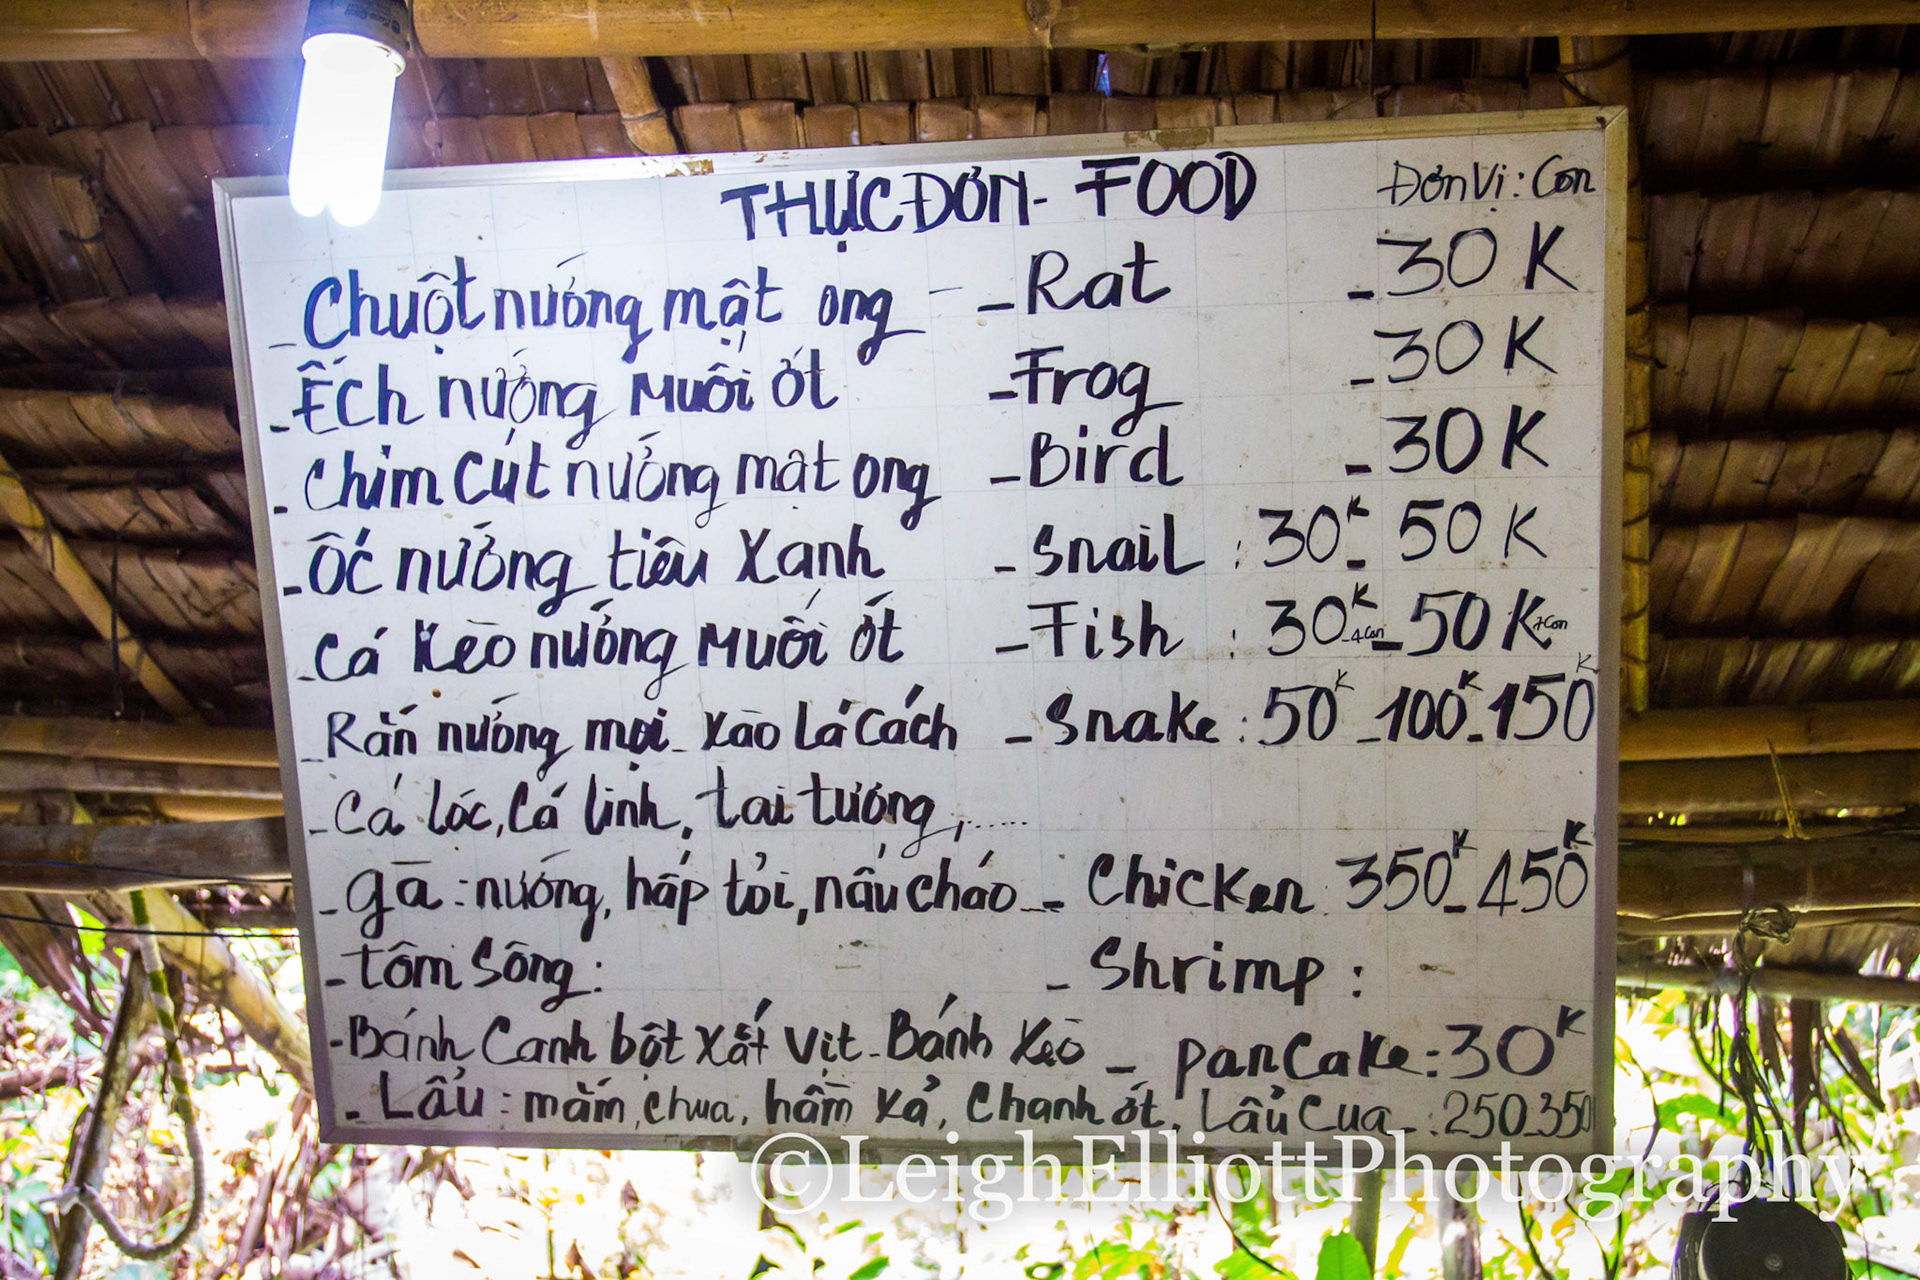 THỰC ĐƠN - FOOD Đơn Vị: Con
- Chuột nướng mật ong - Rat - 30K
- Ếch nướng Muối ớt - Frog - 30K
- Chim Cút nướng mật ong - Bird - 30K
- Ốc nướng tiêu Xanh - Snail : 30K - 50K
- Cá Kèo nướng Muối ớt - Fish : 30K - 4 Con - 50K 7 Con
- Rắn nướng mọi - Xào Lá Cách - Snake : 50K - 100K - 150K
- Cá lóc, Cá linh, tai tượng,......
- gà : nướng, hấp tỏi, nấu cháo - Chicken : 350K - 450K
- tôm Sông : - Shrimp :
- Bánh Canh bột Xắt Vịt - Bánh Xèo - panCake : 30K
- Lẩu : mắm, chua, hầm xả, Chanh ớt, Lẩu Cua - : 250 - 350
©LeighElliottPhotography